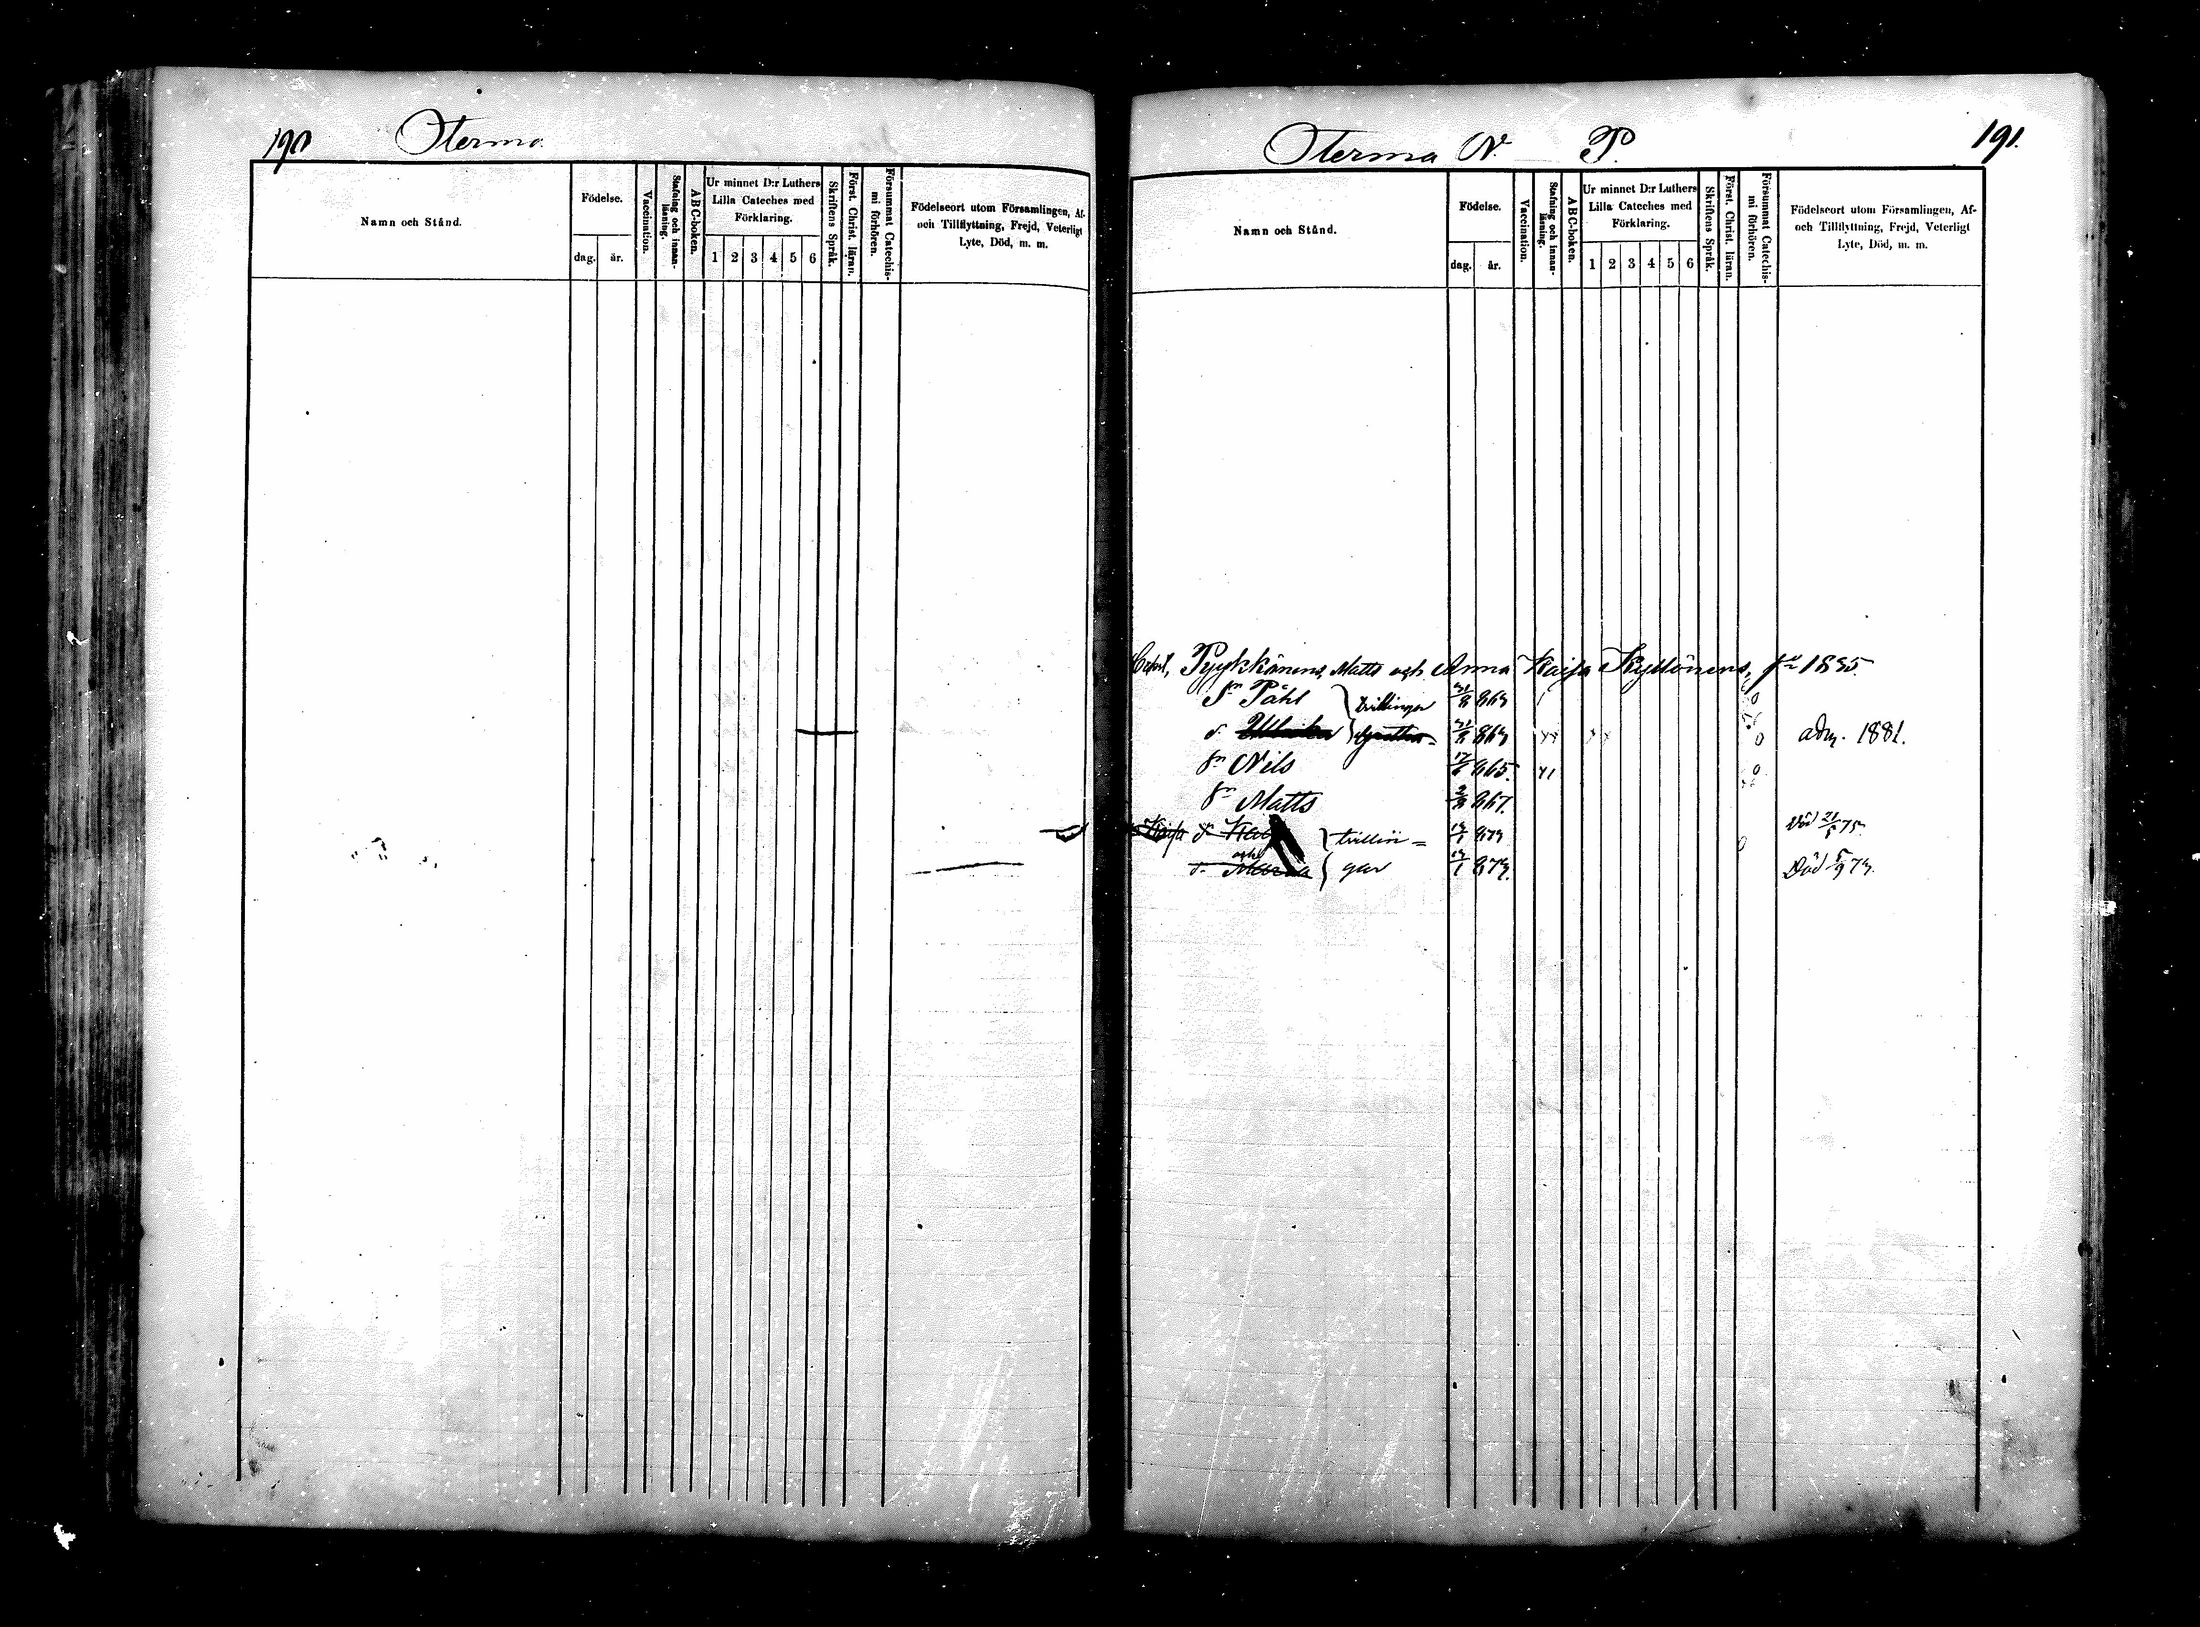 190
Oterma
Namn och Stånd.
Födelse.
dag.
år.
Vaccination.
Stafning och innan-
läsning.
ABC-boken.
Ur minnet D:r Luthers
Lilla Cateches med
Förklaring.
1 2 3 4 5 6
Skriftens Språk.
Först. Christ. läran.
Försummat Catechis-
mi förhören.
Födelseort utom Församlingen, Af-
och Tillflyttning, Frejd, Veterligt
Lyte, Död, m. m.
Oterma N. P. 191.
Namn och Stånd.
Födelse.
dag.
år.
Vaccination.
Stafning och innan-
läsning.
ABC-boken.
Ur minnet D:r Luthers
Lilla Cateches med
Förklaring.
1 2 3 4 5 6
Skriftens Språk.
Först. Christ. läran.
Försummat Catechis-
mi förhören.
Födelseort utom Församlingen, Af-
och Tillflyttning, Frejd, Veterligt
Lyte, Död, m. m.
Pyykkönens, Matts och Anna Kaisa Kyllönens, 1835.
sn Påhl tvillingar 863
d. 863 adm. 1881.
sn Nils 865.
sn Matts 867.
Kaisa d. tvillin= 873 Död 21/5 75
och
d. Maria gar 873. Död 5/9 73.